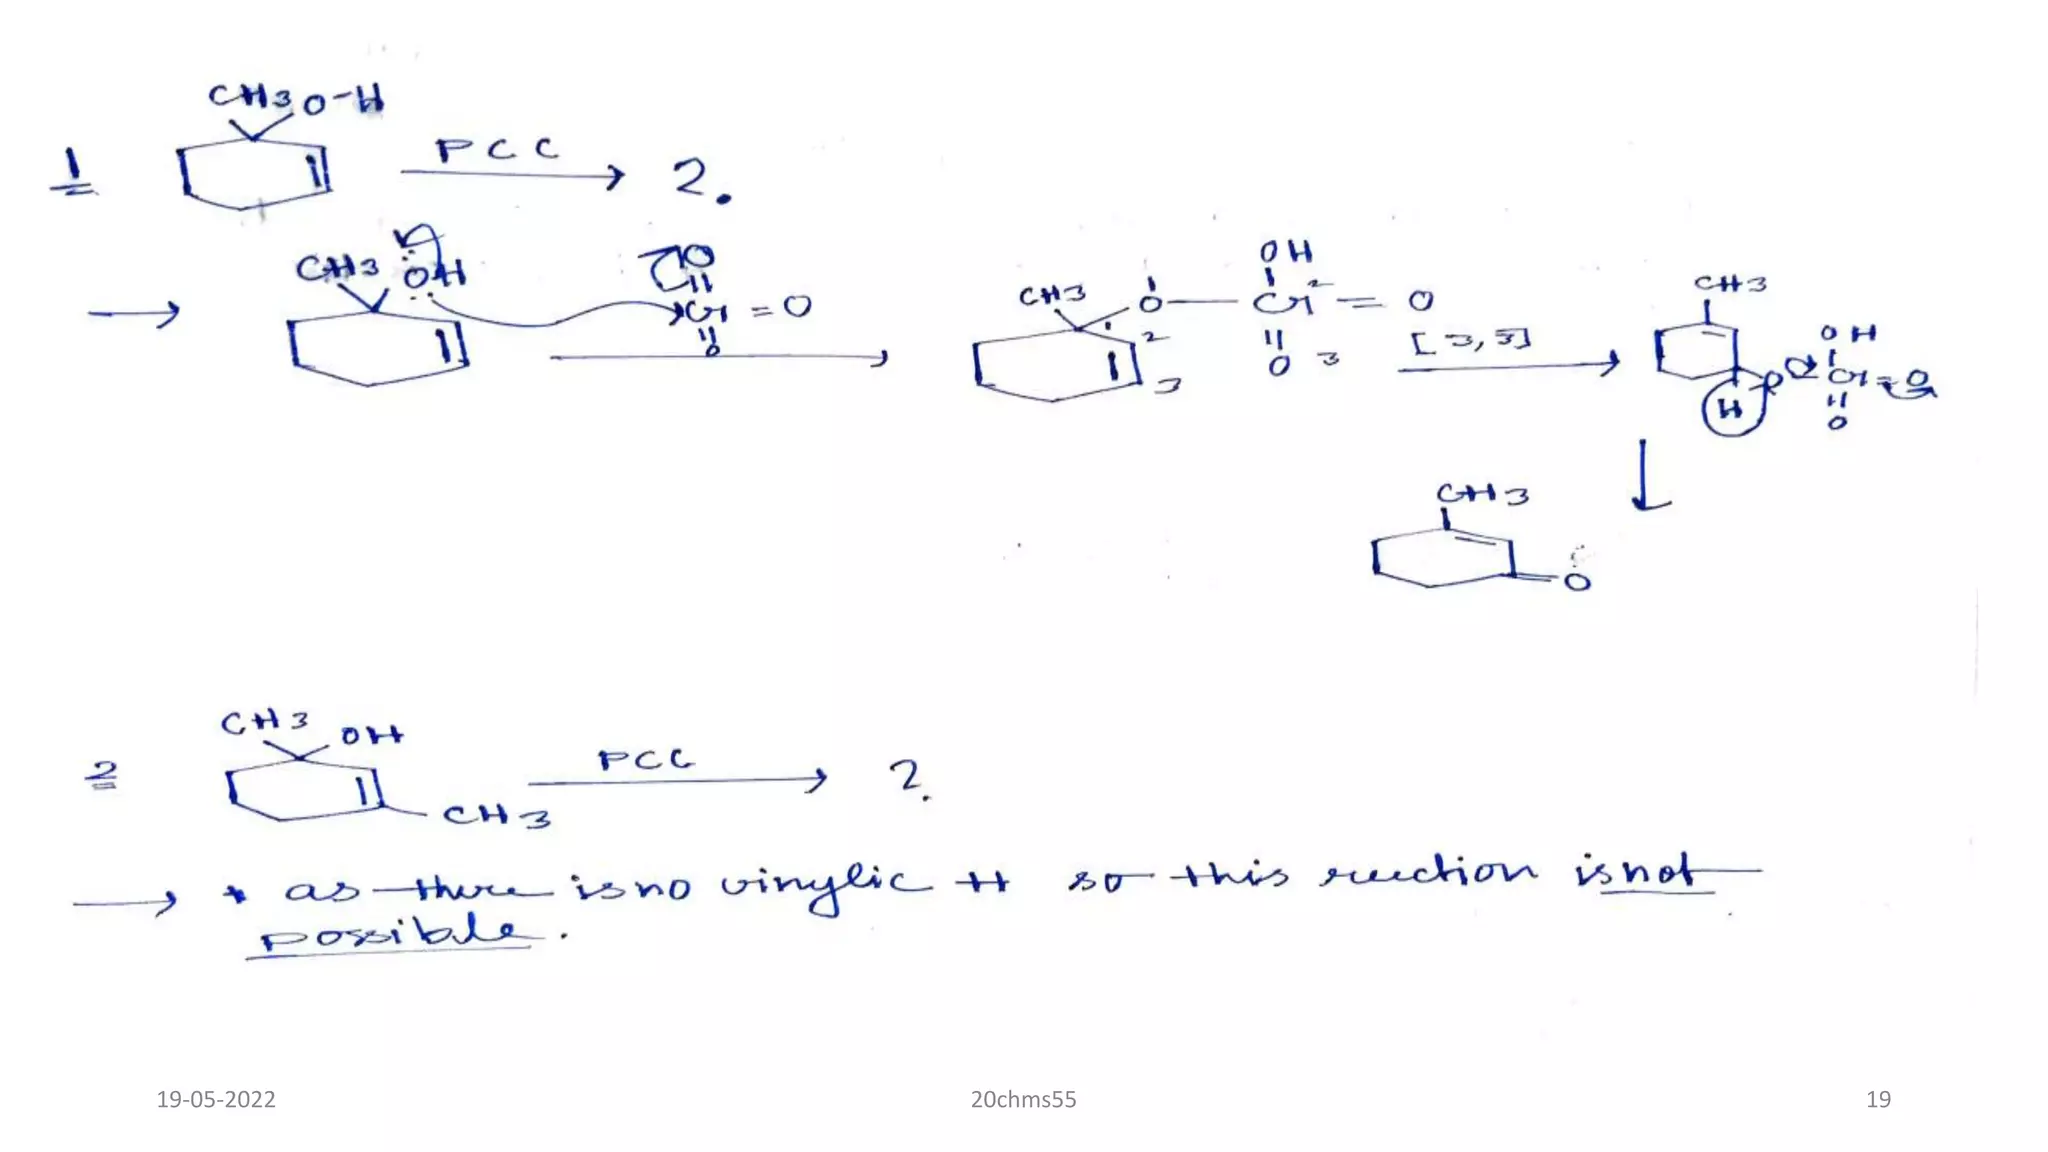 CH3 O-H
1 PCC 2.
CH3 OH O
Cr = O
O
OH
CH3 O — Cr 2 = O
1 2 O 3 [3,3]
3
CH3
OH
O Cr = O
H O
CH3
O
CH3 OH
2 PCC 2.
CH3
* as there is no vinylic H so this reaction is not
possible.
19-05-2022 20chms55 19